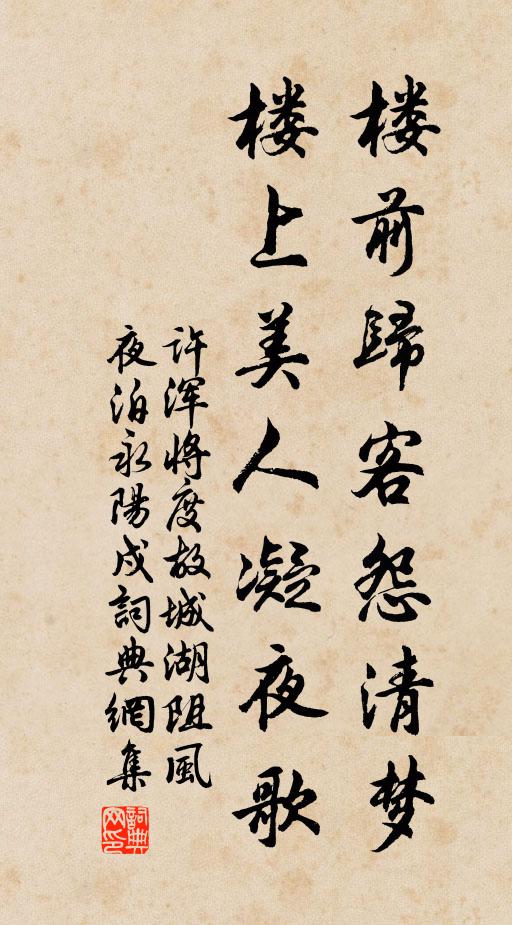 楼前歸客怨清梦
楼上美人凝夜歌
许浑將度故城湖阻風
夜泊永陽戍詞典網集
詞典网印